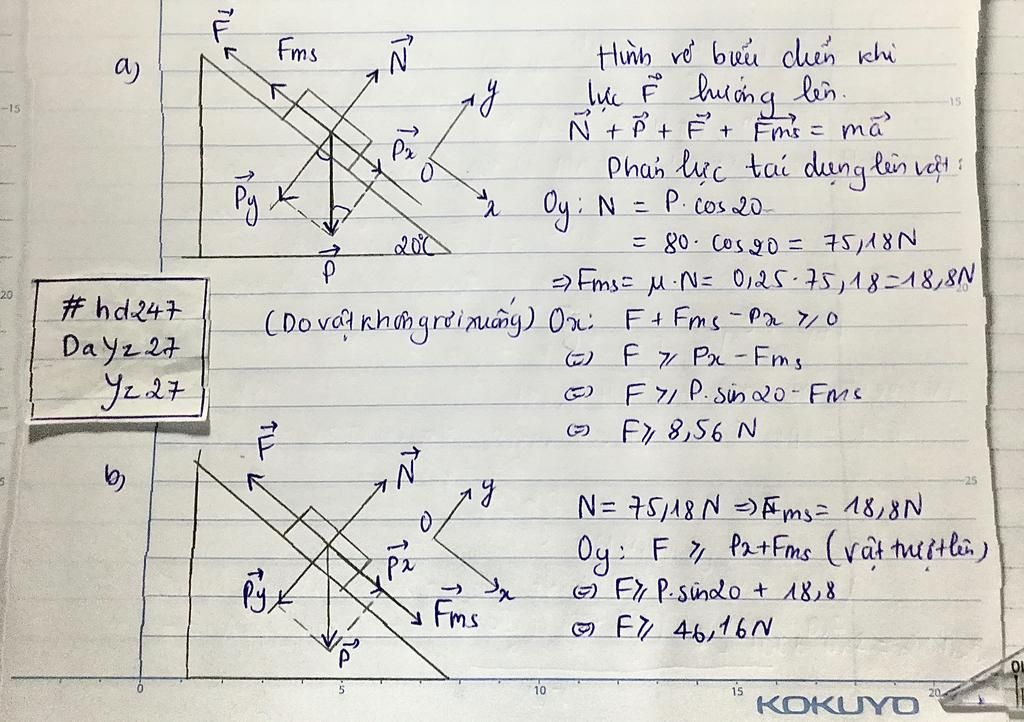 a)
F
Fms
N
y
Px
O
x
Py
P
20°C
Hình vẽ biểu diễn khi
lực F hướng lên.
N + P + F + Fms = ma
Phản lực tác dụng lên vật:
Oy: N = P.cos20
= 80. cos20 = 75,18N
=> Fms = μ.N = 0,25.75,18=18,8N
(Do vật không rơi xuống) Ox: F + Fms - Px ≥ 0
⇔ F ≥ Px - Fms
⇔ F ≥ P.sin20 - Fms
⇔ F ≥ 8,56 N
#hd247
Dayz27
Yz27
b)
F
N
y
O
Px
x
Py
Fms
P
N = 75,18N => Fms = 18,8N
Oy: F ≥ Px+Fms (vật trượt lên)
⇔ F ≥ P.sin20 + 18,8
⇔ F ≥ 46,16N
15
20
5
15
20
25
0
5
10
15
20
KOKUYO